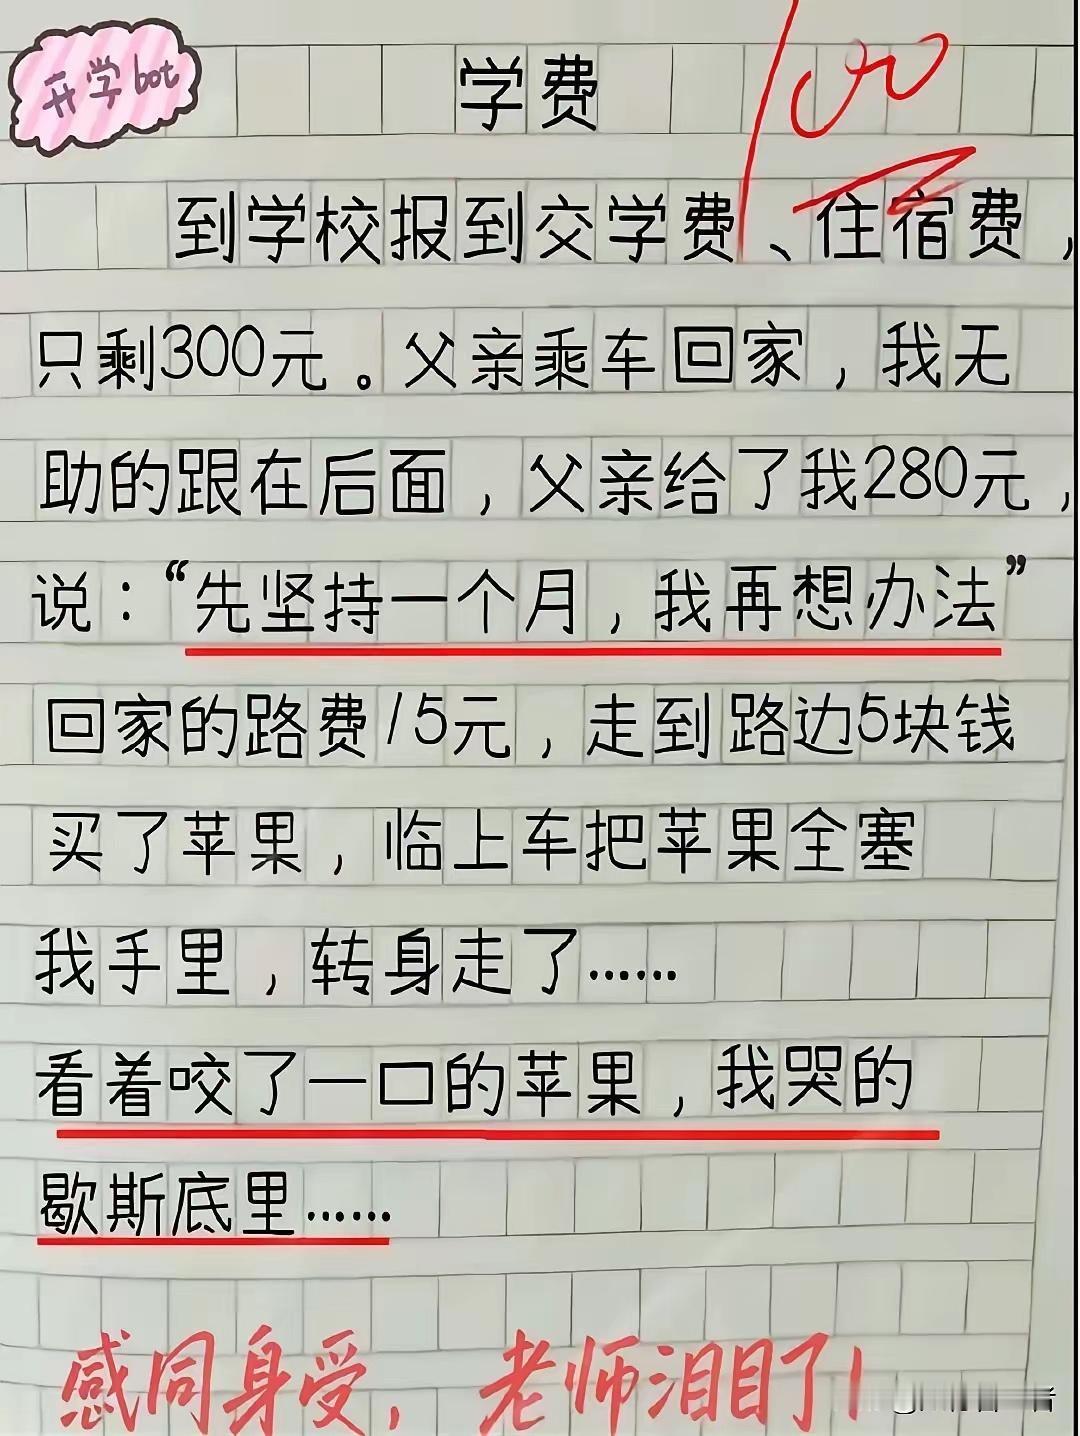 开学bot
学费
100
到学校报到交学费、住宿费，
只剩300元。父亲乘车回家，我无
助的跟在后面，父亲给了我280元，
说：“先坚持一个月，我再想办法”
回家的路费15元，走到路边5块钱
买了苹果，临上车把苹果全塞
我手里，转身走了……
看着咬了一口的苹果，我哭的
歇斯底里……
感同身受，老师泪目了！